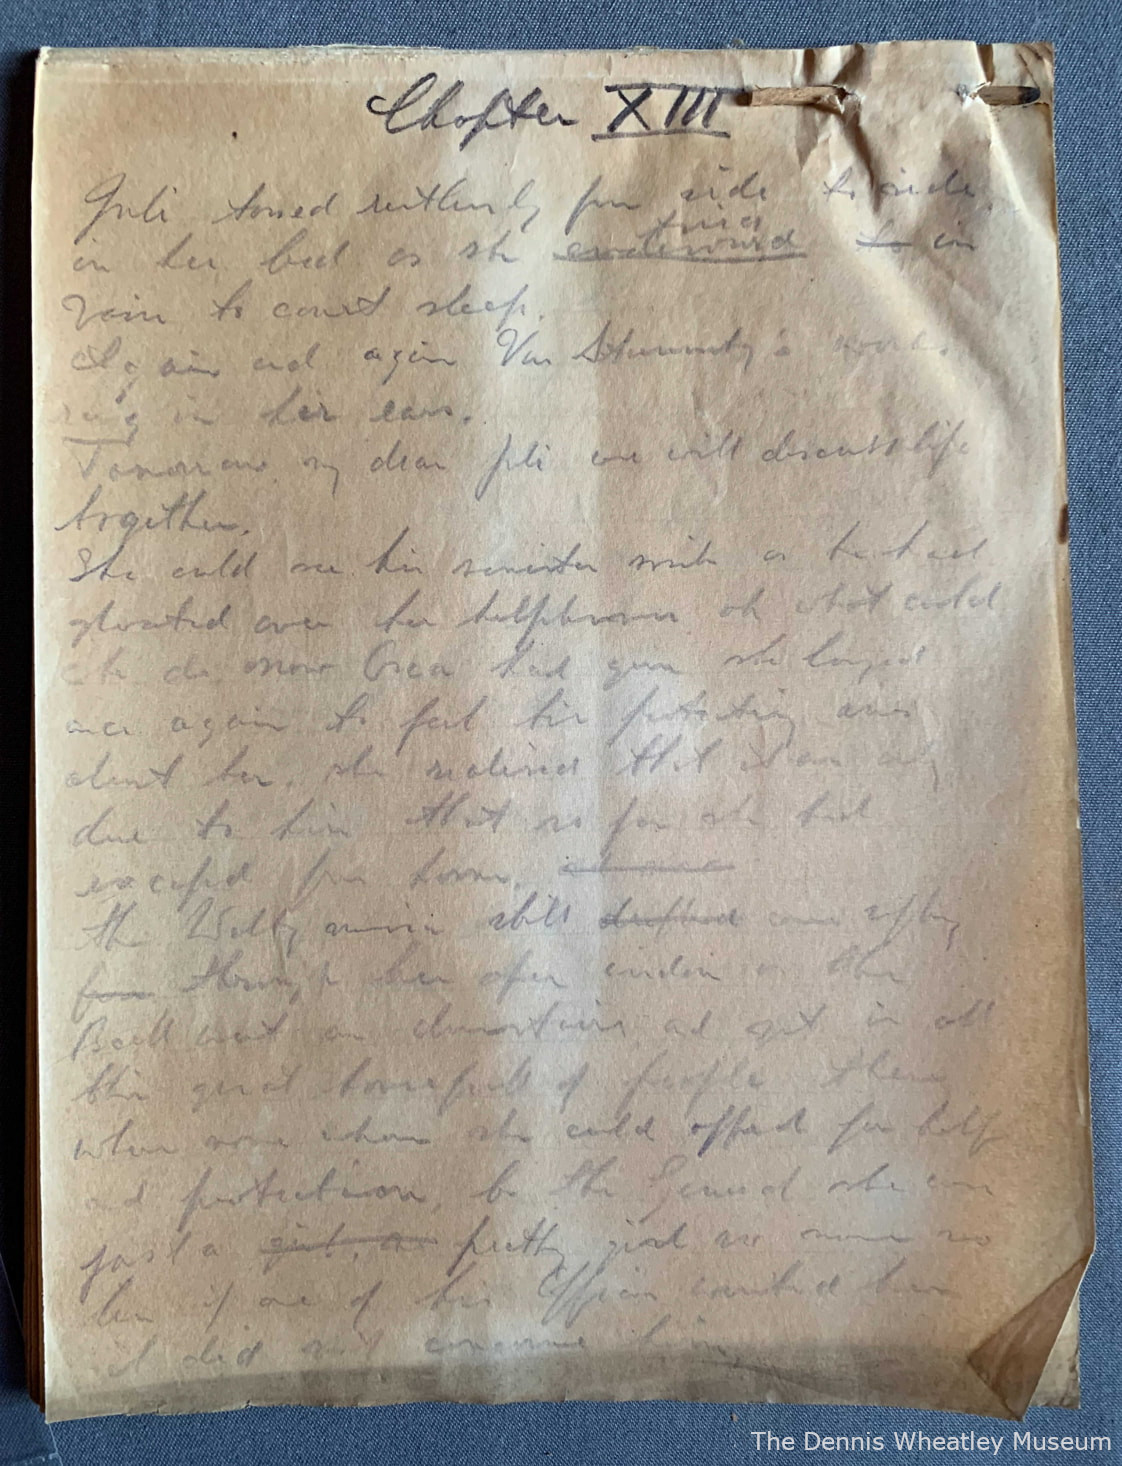 Chapter XIII
Juli tossed restlessly from side to side
in her bed as she tried endeavoured to in
vain to court sleep.
Again and again Van Stummity's words
rang in her ears.
Tomorrow my dear Juli we will discuss life
together.
She could see his sinister smile as he had
gloated over her helplessness oh what could
she do now had gone she longed
once again to feel his protecting arms
about her. she realised that it was only
due to him that so far she had
escaped from
the Waltz music still drifted came softly
from through her open window as the
Ball went on downstairs and yet in all
this great house full of people there
was none whom she could appeal for help
and protection, to the General she was
just a girl, a pretty girl no more no
less if one of his Officers wanted her
it did not concerne him
The Dennis Wheatley Museum